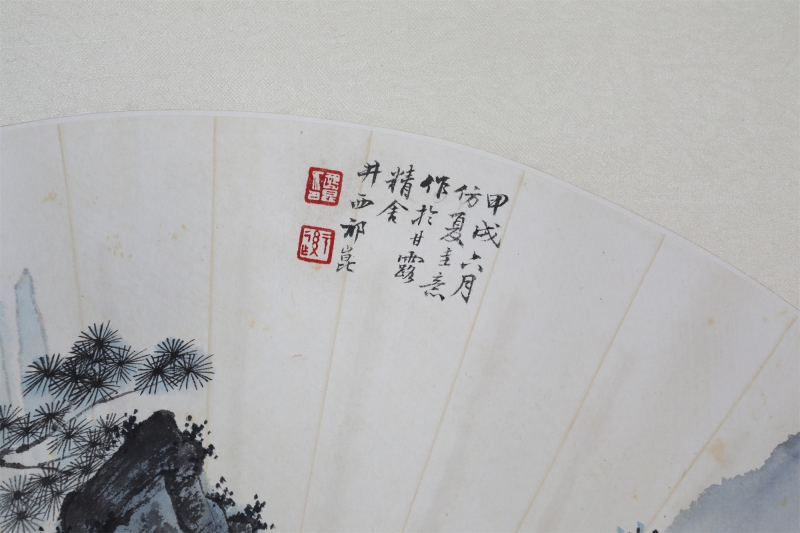 甲戌六月
仿夏圭意
作於甘露
精舍
井西祁崑